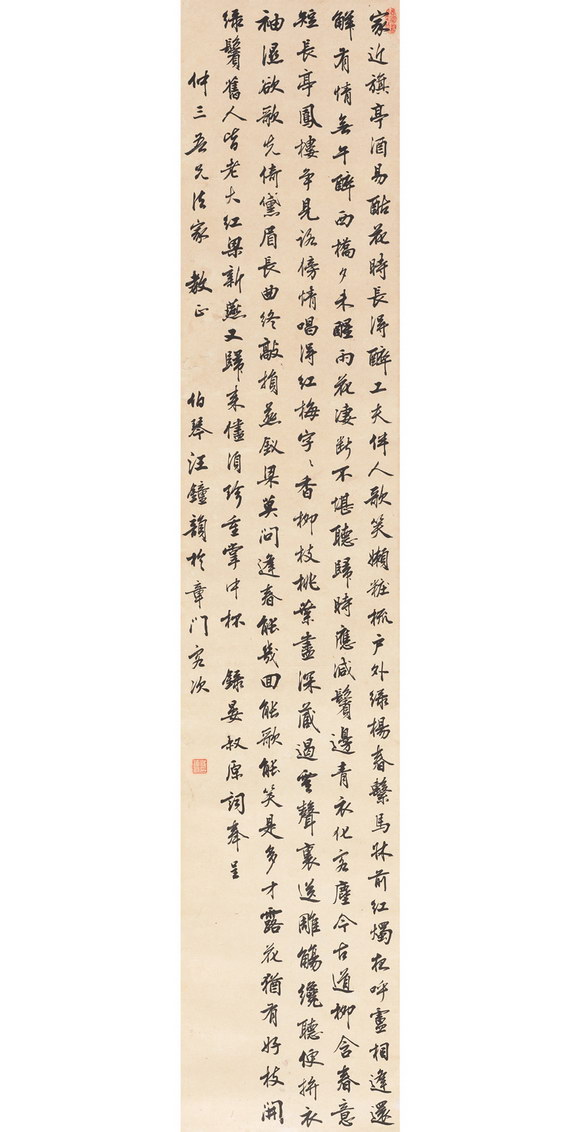 家近旗亭酒易酤花時長得醉工夫伴人歌笑嬾粧梳户外綠楊春繫馬牀前紅燭夜呼盧相逢還
解有情無午醉西橋夕未醒雨花淒斷不堪聽歸時應減鬢邊青衣化客塵今古道柳含春意
短長亭鳳樓爭見路傍情唱得紅梅字〻香柳枝桃葉盡深藏遏雲聲裏送雕觴纔聽便拚衣
袖濕欲歌先倚黛眉長曲終敲損燕釵梁莫問逢春能幾回能歌能笑是多才露花猶有好枝開
綠鬢舊人皆老大紅梁新燕又歸來儘須珍重掌中杯 錄晏叔原詞奉呈
仲三吾兄法家 教正 伯琴汪鐘韻於章門客次